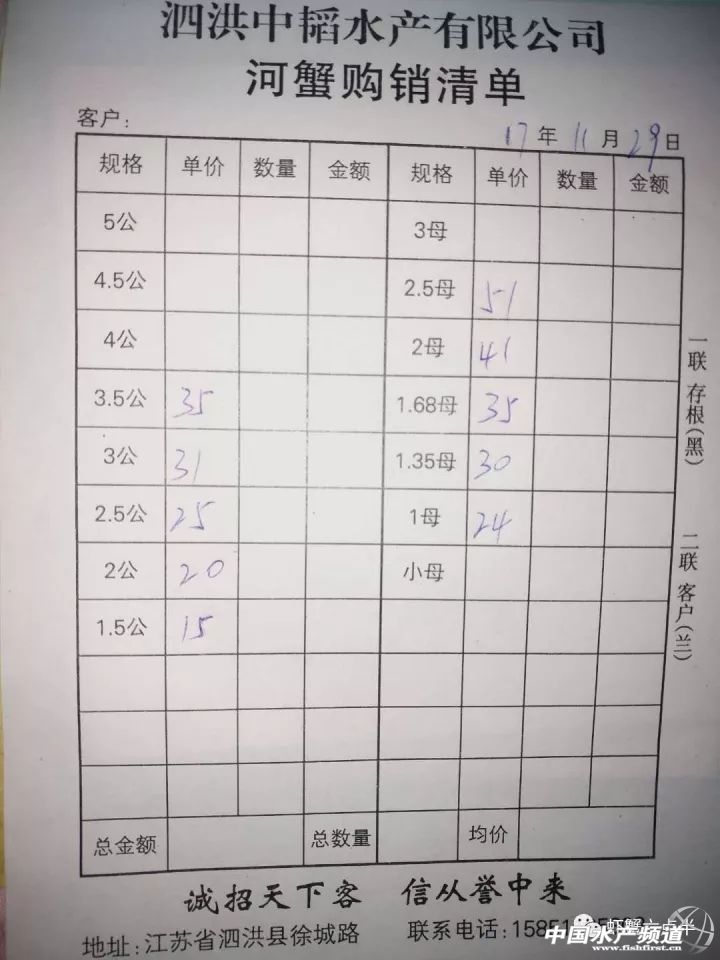 泗洪中韬水产有限公司
河蟹购销清单
客户: 17 年 11 月 29 日
规格 单价 数量 金额 规格 单价 数量 金额
5公 3母
4.5公 2.5母 51
4公 2母 41
3.5公 35 1.68母 35
3公 31 1.35母 30
2.5公 25 1母 24
2公 20 小母
1.5公 15
总金额 总数量 均价
诚招天下客 信从誉中来
地址:江苏省泗洪县徐城路 联系电话:15851
一联 存根(黑)
二联 客户(兰)
虾蟹六点半
中国水产频道
www.fishfirst.cn